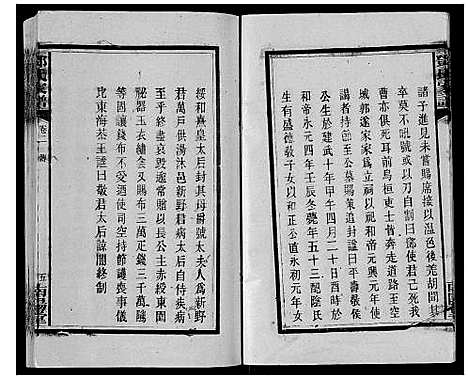 諸子進見未嘗賜席接以溫色後羌胡問其
卒莫不吼號或以刀自割曰鄧使君已死我
曹亦俱死耳前烏桓吏士皆奔走道路至空
城郭遂家家為立祠以祀和帝元興元年后
臨朝使使持節至公墓賜策追封諡曰平壽敬侯
公生於建武十年甲午四月二十日酉時於
和帝永元四年壬辰冬薨年五十三配陰氏
生有盛德敎子女以和正公遺永元年女
綏和熹皇太后封其母爵號太夫人為新野
君萬戶供湯沐邑新野君病太后自侍疾病
至乎終盡哀毀逾常贈以長公主赤綬東園
秘器玉衣繡衾又賜布三萬疋錢三千萬隲
等固讓錢布不受酒使司空持節護喪事儀
比東海恭王諡曰敬君太后諒闇終制
卷之二
五